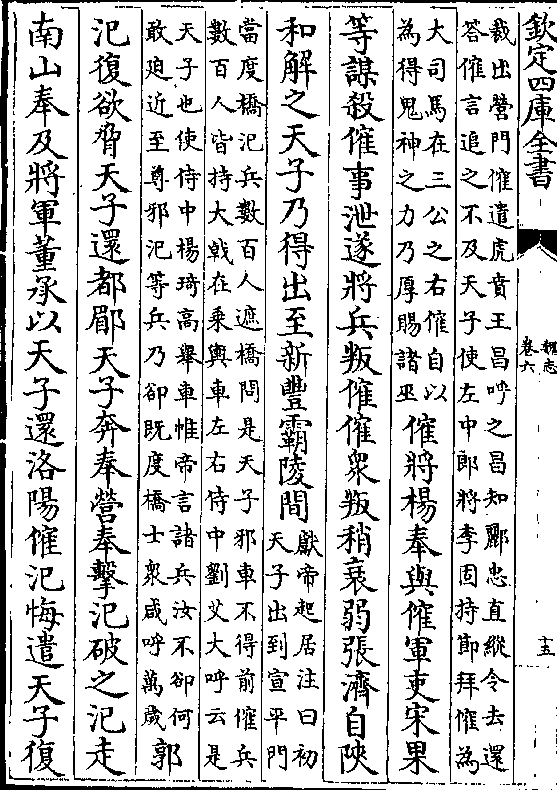 欽定四庫全書
魏志
卷六
十五
裁出營門傕遣虎賁王昌呼之昌知酈忠直縱令去還
答傕言追之不及天子使左中郎將李固持節拜傕為
大司馬在三公之右傕自以
為得鬼神之力乃厚賜諸巫
傕將楊奉與傕軍吏宋果
等謀殺傕事泄遂將兵叛傕傕衆叛稍衰弱張濟自陝
和解之天子乃得出至新豐霸陵間
獻帝起居注曰初
天子出到宣平門
當度橋汜兵數百人遮橋問是天子邪車不得前傕兵
數百人皆持大戟在乘輿車左右侍中劉艾大呼云是
天子也使侍中楊琦高舉車惟帝言諸兵汝不卻何
敢迫近至尊邪汜等兵乃卻既度橋士衆咸呼萬歲
郭
汜復欲脅天子還都郿天子奔奉營奉擊汜破之汜走
南山奉及將軍董承以天子還洛陽傕汜悔遣天子復